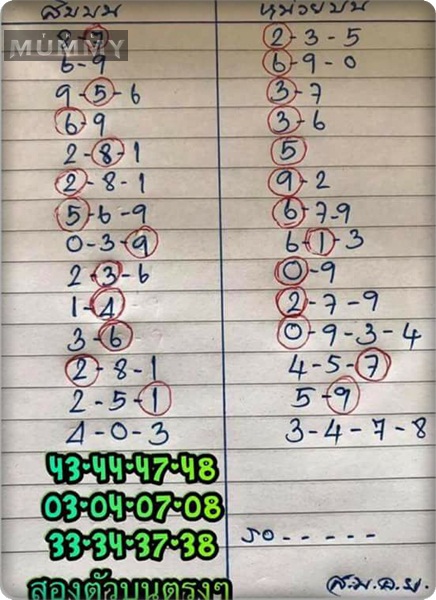 สิบบน หน่วยบน
8-7 2-3-5
MUMMY
6-9 6-9-0
9-5-6 3-7
6-9 3-6
2-8-1 5
2-8-1 9-2
5-6-9 6-7-9
0-3-9 6-1-3
2-3-6 0-9
1-4 2-7-9
3-6 0-9-3-4
2-8-1 4-5-7
2-5-1 5-9
4-0-3 3-4-7-8
43•44•47•48
03•04•07•08
33•34•37•38
รอ-----
สองตัวบนตรงๆ